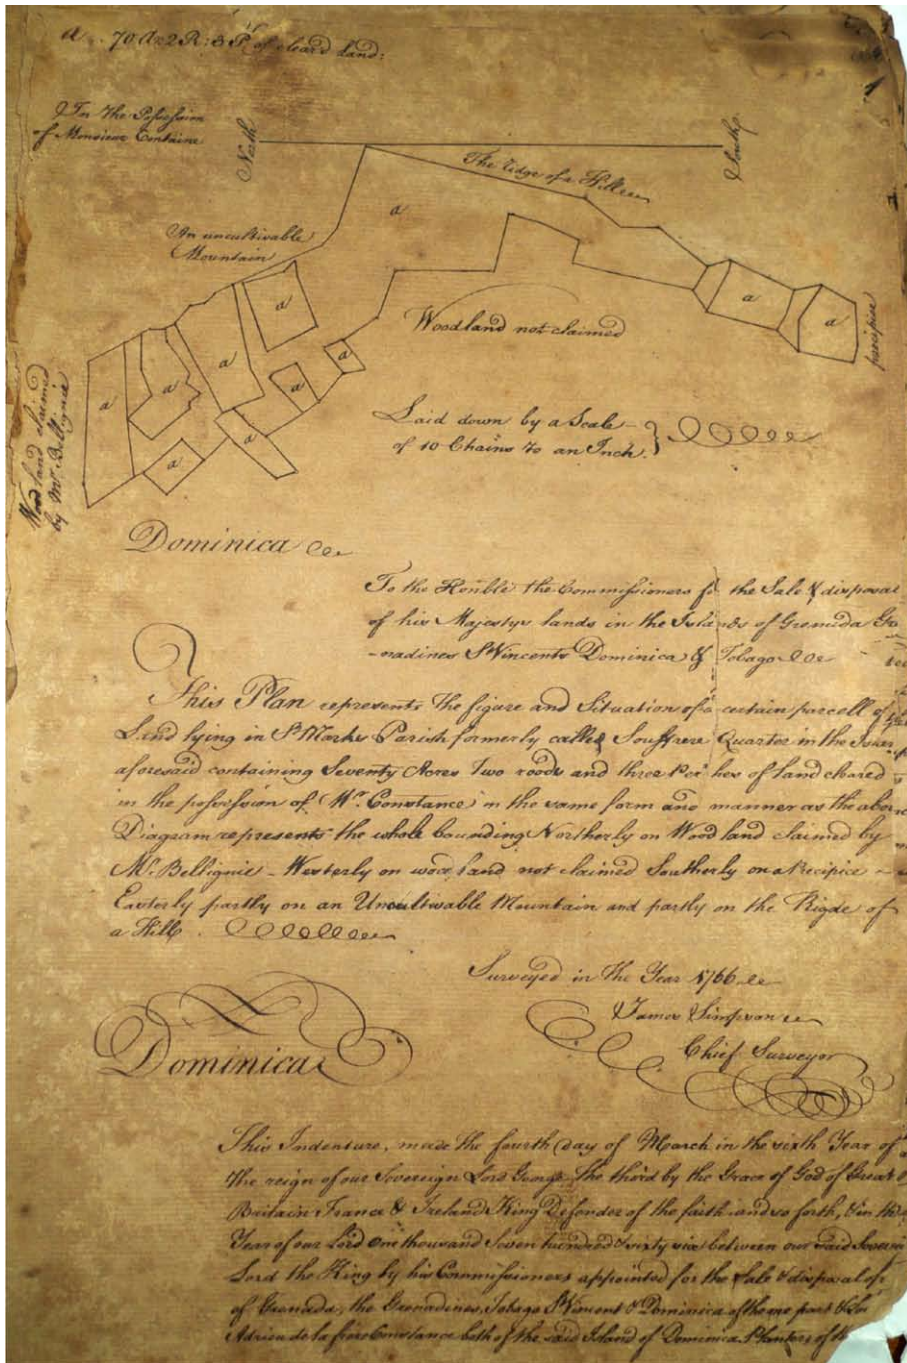 a .. 70 A : 2 R : 3 P. of clear'd land :
In the Possession
of Monsieur
North
South
The Ridge of a Hill
An uncultivable
Mountain
a
a
a
a
a
a
a
a
a
a
a
Woodland not claimed
precipice
Wood land claimed
by Mr. Bellignie
Laid down by a Scale
of 10 Chains to an Inch.
Dominica
To the Honble the Commissioners for the Sale & disposal
of his Majestys lands in the Islands of Grenada Gre
-nadines St Vincents Dominica & Tobago
This Plan represents the figure and Situation of a certain parcell of
Land lying in St Marks Parish formerly called Souffrere Quarter in the
aforesaid containing Seventy Acres Two roods and three Perches of land cleared
in the possession of Mr. Constance in the same form and manner as the above
Diagram represents the whole bounding Northerly on Wood land claimed by
Mr. Bellignie - Westerly on wood land not claimed Southerly on a Precipice
Easterly partly on an Uncultivable Mountain and partly on the Rigde of
a Hill.
Surveyed in the Year 1766
James Simpson
Chief Surveyor
Dominica
This Indenture, made the fourth day of March in the sixth Year of
the reign of our Sovereign Lord George the third by the Grace of God of Great
Britain France & Ireland King Defender of the faith and so forth, & in the
Year of our Lord One thousand Seven hundred & sixty six between our said Sovereign
Lord the King by his Commissioners appointed for the Sale & disposal of
of Grenada, the Grenadines, Tobago St Vincent & Dominica of the one part &
Adrien de la Constance both of the said Island of Dominica Planters of the